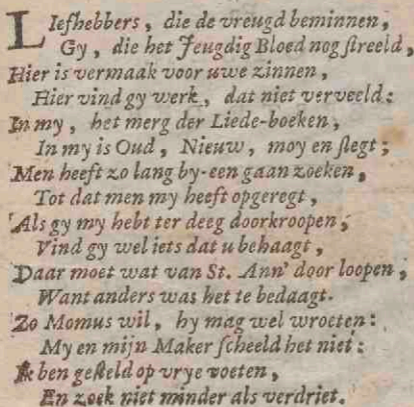 LIefhebbers, die de vreugd beminnen,
Gy, die het Jeugdig Bloed nog ſtreeld,
Hier is vermaak voor uwe zinnen,
Hier vind gy werk, dat niet verveeld:
In my, het merg der Liede-boeken,
In my is Oud, Nieuw, moy en ſlegt;
Men heeft zo lang by-een gaan zoeken,
Tot dat men my heeft opgeregt,
Als gy my hebt ter deeg doorkroopen,
Vind gy wel iets dat u behaagt,
Daar moet wat van St. Ann' door loopen,
Want anders was het te bedaagt.
Zo Momus wil, hy mag wel wroeten:
My en mijn Maker ſcheeld het niet:
Ik ben geſteld op vrye voeten,
En zoek niet minder als verdriet.